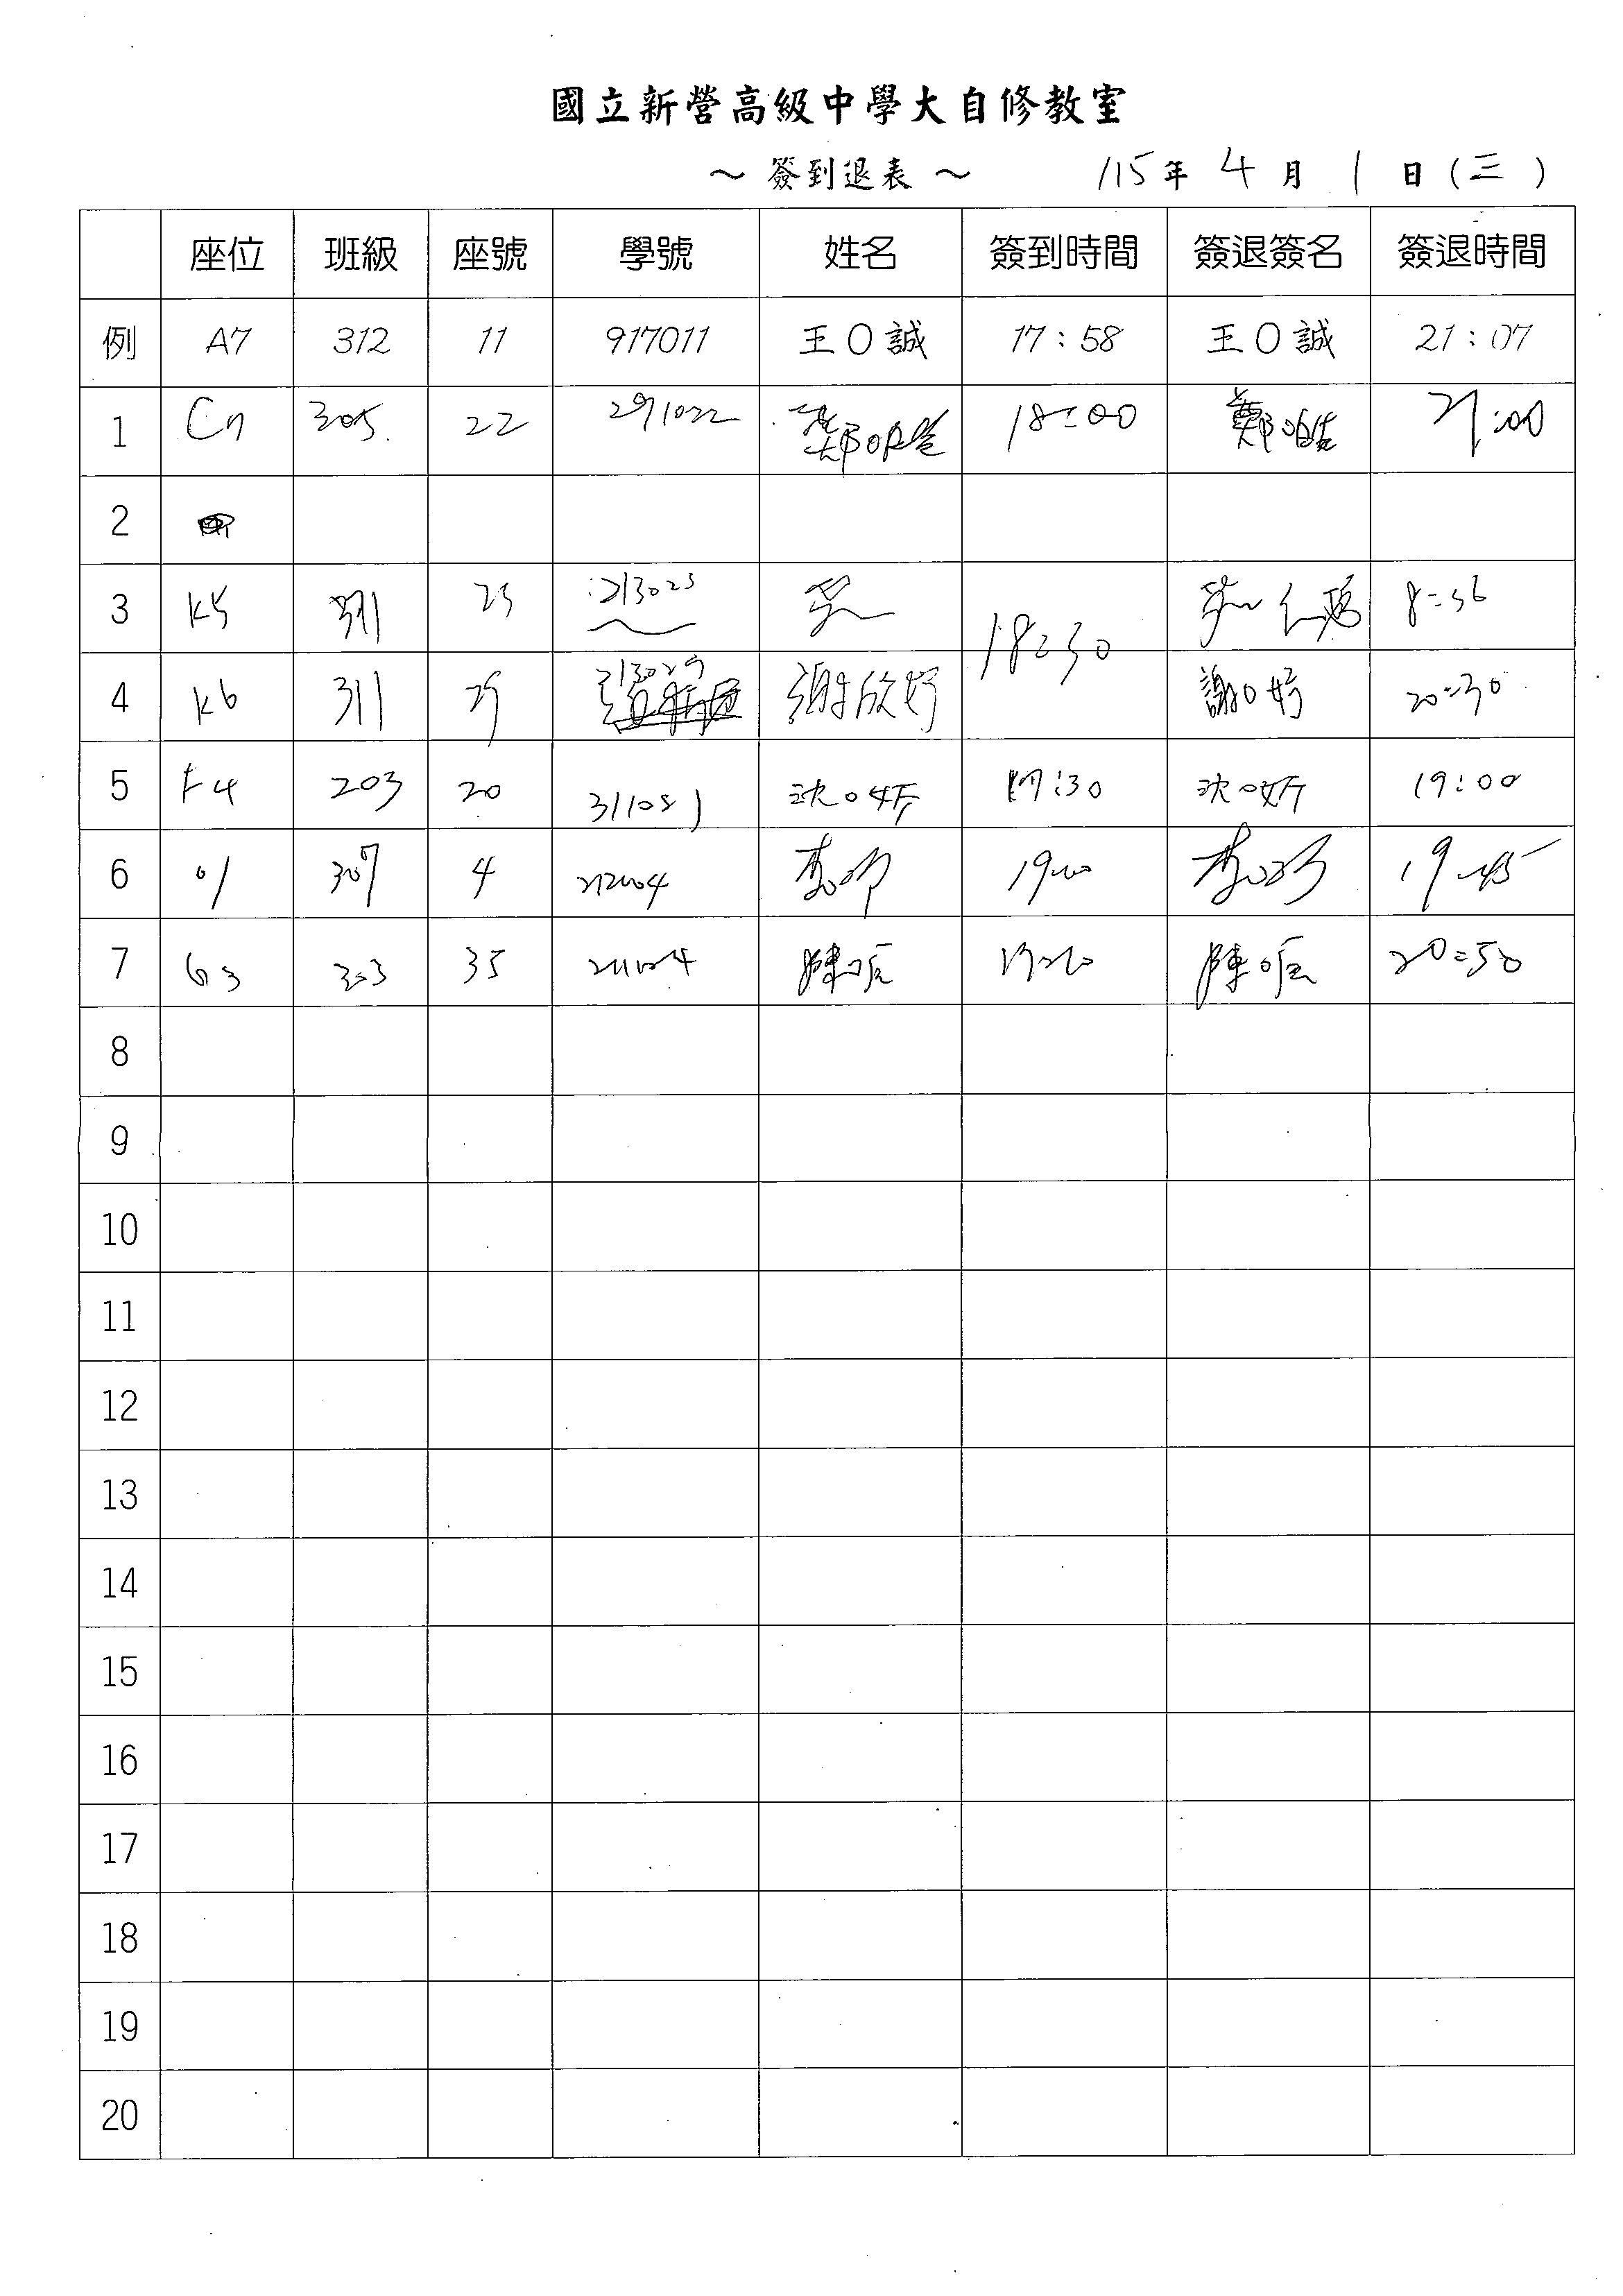 國立新營高級中學大自修教室
～ 簽到退表 ～ 115年 4 月 1 日(三)
座位 班級 座號 學號 姓名 簽到時間 簽退簽名 簽退時間
例 A7 312 11 917011 王O誠 17:58 王O誠 21:07
1 C7 305 22 291022 18:00 21:00
2
3 K5 311 25 213025 18:30 8:56
4 K6 311 29 213029 謝欣妤 謝O妤 20:30
5 F4 203 20 311051 沈O妤 17:30 沈O妤 19:00
6 307 4 212004 李O 19:00 李O 19:45
7 G3 303 35 陳O 陳O 20:50
8
9
10
11
12
13
14
15
16
17
18
19
20